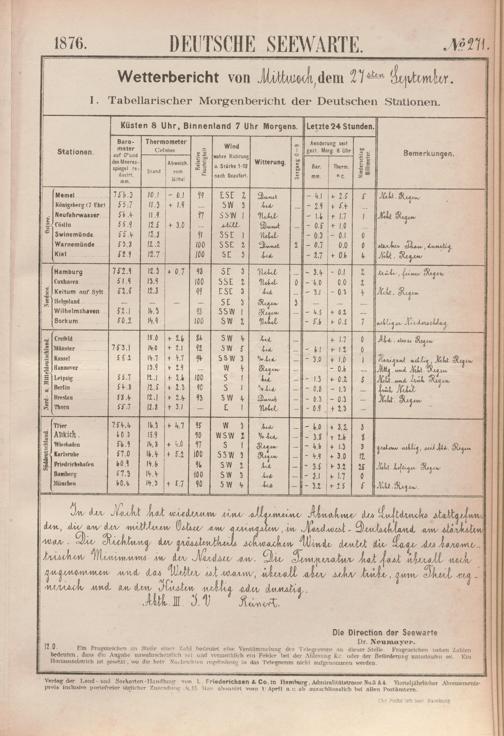 1876. DEUTSCHE SEEWARTE. No 271.
Wetterbericht von Mittwoch, dem 27sten September.
I. Tabellarischer Morgenbericht der Deutschen Stationen.
Küsten 8 Uhr, Binnenland 7 Uhr Morgens. Letzte 24 Stunden.
Stationen. Barometer auf 0° und den Meeresspiegel reduzirt. mm. Thermometer Celsius Stand. Abweich. vom Mittel Relative Feuchtigkeit Wind wahre Richtung u. Stärke 1-12 nach Beaufort. Witterung. Seegang 0-9 Aenderung seit gest. Morg. 8 Uhr Bar. mm. Therm. °C. Niederschlag Millimeter. Bemerkungen.
Ostsee.
Memel 754.3 10.1 - 0.1 99 ESE 2 Dunst - 4.1 + 2.5 5 Ncht. Regen
Königsberg (7 Uhr) 55.7 11.3 + 1.9 SW 3 bed - 2.9 + 5.4
Neufahrwasser 56.4 11.9 97 SSW 1 Nebel - 1.6 + 1.7 1 Ncht Regen
Cöslin 55.9 12.5 + 3.0 still Dunst - 0.5 + 1.0
Swinemünde 55.4 11.1 91 SSE 1 Nebel - 0.3 - 0.1 0
Warnemünde 53.8 12.2 100 SSE 2 Dunst 2 - 0.7 0.0 0 starker Thau, dunstig
Kiel 52.9 12.7 100 SE 3 bed - 2.7 + 0.6 4 Ncht. Regen
Nordsee.
Hamburg 752.9 12.3 + 0.7 98 SE 3 Nebel - 3.4 - 0.1 2 trübe, feiner Regen
Cuxhaven 51.9 13.9 100 SSE 2 Nebel 0 - 4.0 0.0 2
Keitum auf Sylt 52.6 12.3 99 ESE 3 bed - 3.1 - 0.3 4 Ncht. Regen
Helgoland SE 3 Regen 3
Wilhelmshaven 52.1 14.3 93 SSW 1 Regen - 4.5 + 0.2
Borkum 50.2 14.9 100 SW 2 Nebel - 5.6 + 0.2 7 nebliger Niederschlag
Nord u. Mitteldeutschland.
Crefeld 15.0 + 2.6 86 SW 4 bed + 1.7 0 Abd. etwas Regen
Münster 753.1 14.0 + 2.1 92 SW 5 bed - 4.1 + 1.2 0
Kassel 55.2 14.7 + 4.7 94 SSW 3 - 3.0 + 1.0 1
Hannover 13.9 + 2.9 W 4 Regen - 0.6
Leipzig 55.7 12.1 + 2.6 100 S 1 bed - 1.3 + 0.2 5 Ncht. und früh Regen
Berlin 54.8 12.5 + 2.3 97 S 1 - 0.8 - 1.3 früh Nebel
Breslau 58.4 12.1 + 2.4 93 SW 4 Dunst - 0.3 - 0.3 Ncht. Regen
Thorn 55.7 12.8 + 3.1 E 1 Nebel - 0.9 + 2.3
Süddeutschland.
Trier 754.4 16.3 + 4.7 95 W 3 bed - 6.0 + 3.2 3
40.3 15.9 90 WSW 2 - 3.8 + 2.6 8
Wiesbaden 56.9 14.3 + 4.0 97 S 1 Regen - 4.6 + 1.5 gestern neblig, seit Abd. Regen
Karlsruhe 57.0 16.4 + 5.2 100 SSW 3 Regen - 4.9 + 3.0 12
Friedrichshafen 60.9 14.6 96 SW 2 bed - 3.5 + 3.2 25 Ncht. heftiger Regen
Bamberg 57.3 14.4 100 SW 2 bed - 3.1 + 1.7 0
München 60.4 14.3 + 5.7 90 SW 4 bed - 3.2 + 2.5 5 Ncht. Regen
In der Nacht hat wiederum eine allgemeine Abnahme des Luftdrucks stattgefun-
den, die an der mittleren Ostsee am geringsten, in Nordwest-Deutschland am stärksten
war. Die Richtung der grösstentheils schwachen Winde deutet die Lage des barome-
trischen Minimums in der Nordsee an. Die Temperatur hat fast überall noch
zugenommen und das Wetter ist warm, überall aber sehr trübe, zum Theil reg-
nerisch und an den Küsten neblig oder dunstig.
Abth. III I. V.
Die Direction der Seewarte
Dr. Neumayer.
12.0. Ein Fragezeichen an Stelle einer Zahl bedeutet eine Verstümmelung des Telegramms an dieser Stelle. Fragezeichen neben Zahlen
bedeuten, dass die Angabe unwahrscheinlich sei und vermuthlich ein Fehler bei der Ablesung &c. oder der Beförderung untergelaufen sei. Ein
Horizontalstrich ist gesetzt, wo die betr. Nachrichten regelmässig in das Telegramm nicht aufgenommen werden.
Verlag der Land- und Seekarten-Handlung von L. Friederichsen & Co. in Hamburg, Admiralitätstrasse No. 3 & 4. Vierteljährlicher Abonnements-
preis inclusive portofreier täglicher Zusendung